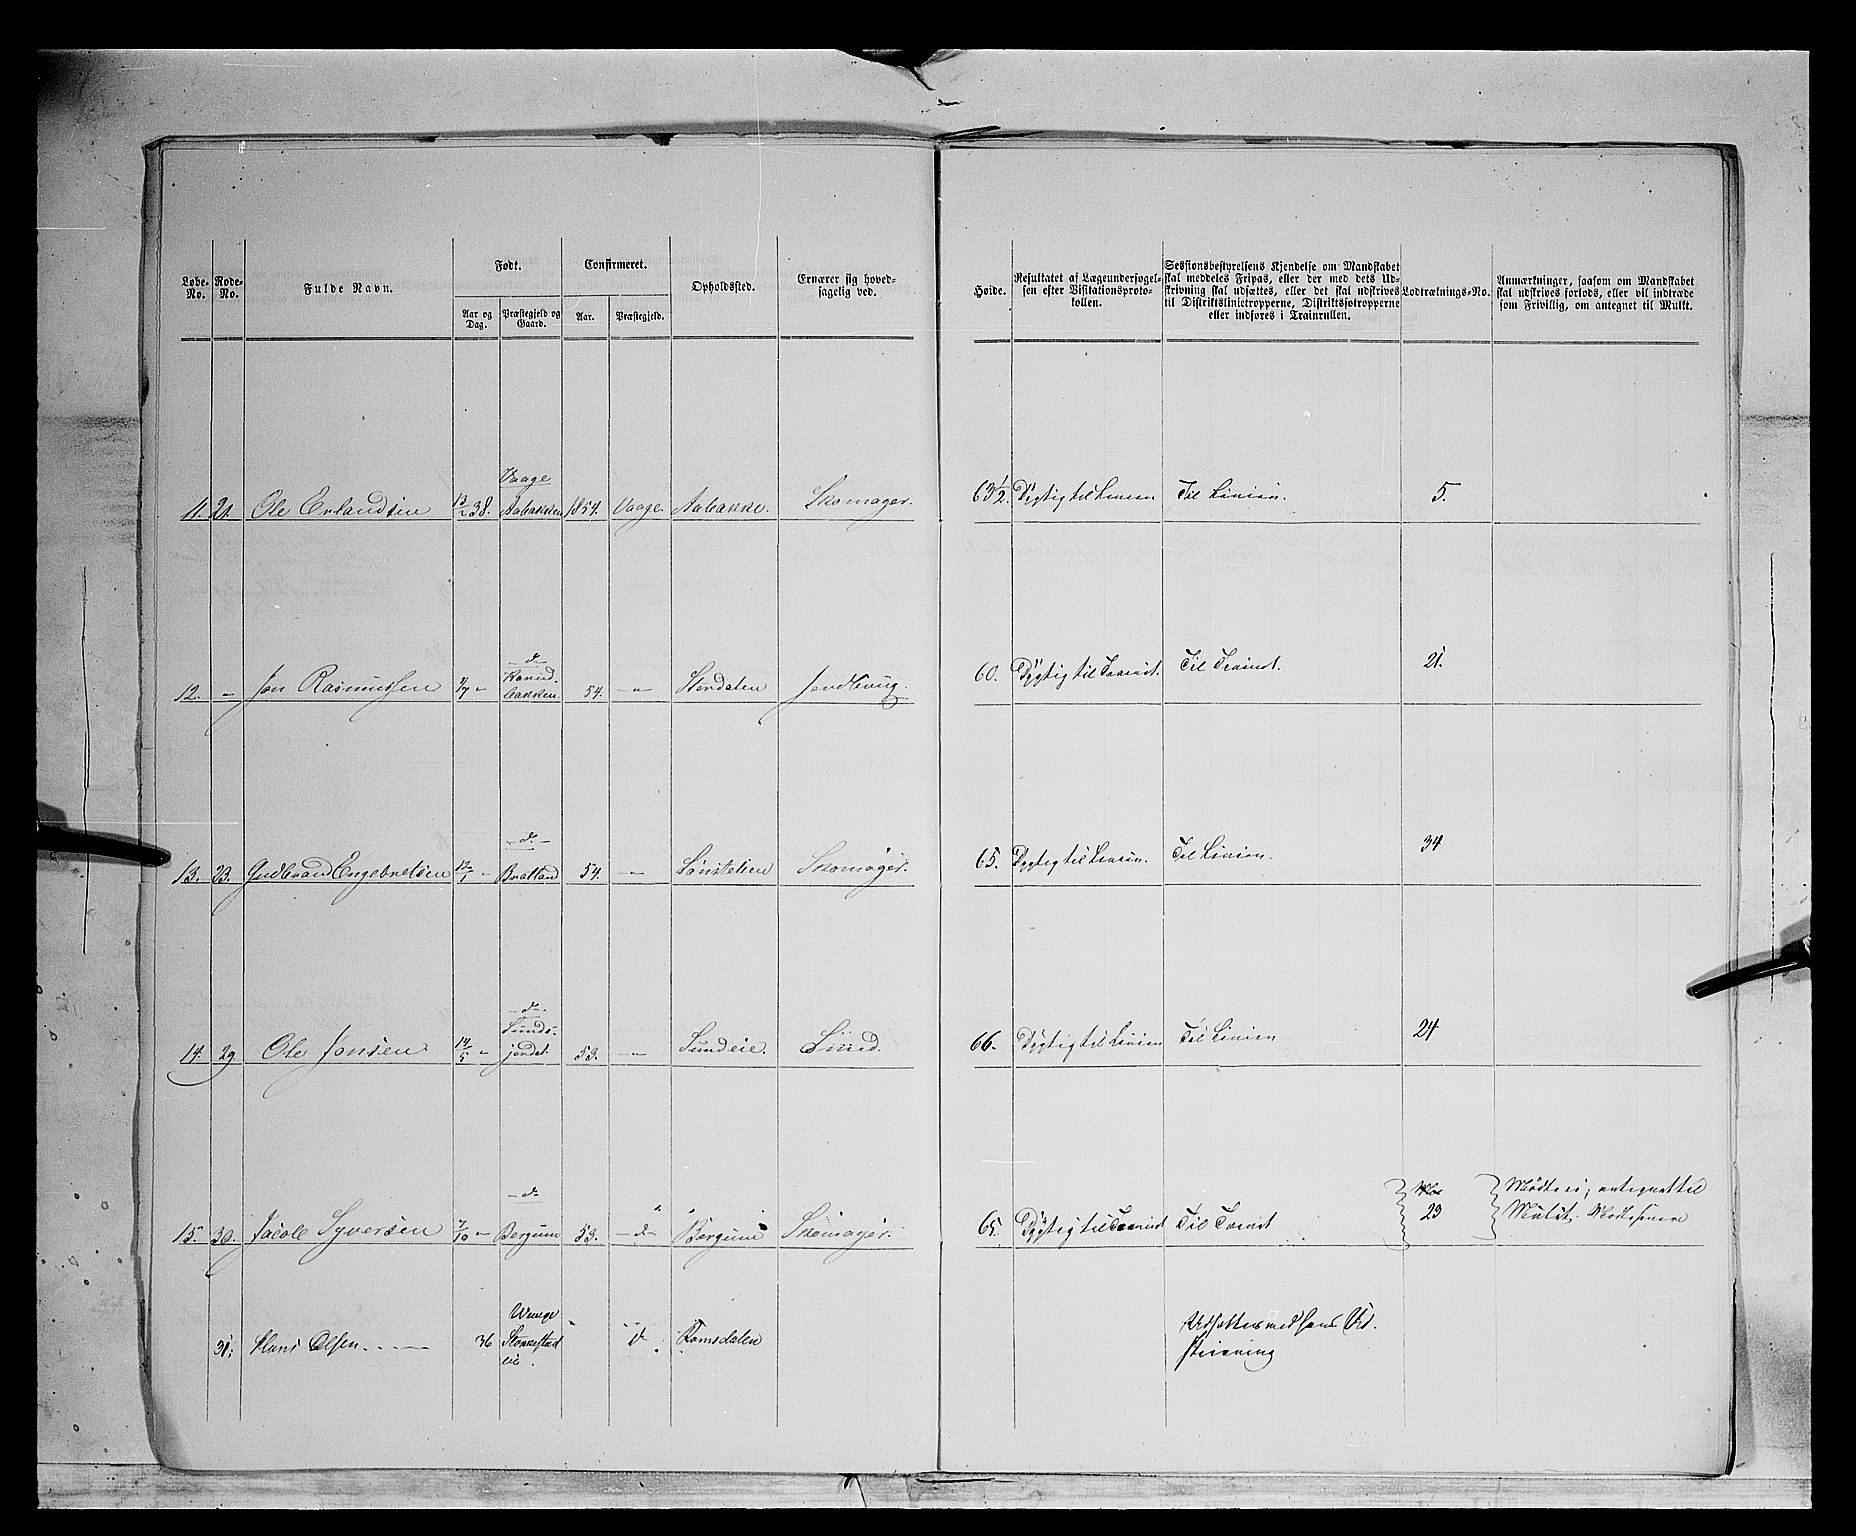 Løbe-No. Rode-No. Fulde Navn. Født. Confirmeret. Opholdssted. Ernærer sig hoved-sagelig ved. Høide. Resultatet af Lægeundersøgel-sen efter Visitationsproto-kollen. Sessionsbestyrelsens Kjendelse om Mandskabet skal meddeles Fripas, eller der med dets Ud-skrivning skal udsættes, eller det skal udskrives til Distriktslinietropperne, Distriktsfotropperne eller indføres i Trainrullen. Lodtræknings-No. Anmærkninger, saasom om Mandskabet skal udskrives forlods, eller vil indtræde som Frivillig, om antegnet til Mulkt.
Aar og Dag. Præstegjeld og Gaard. Aar. Præstegjeld.
Vaage
11. 21. Ole Erlandsen 13/2 38. Aabakken 1854. Vaage. Aabakke. Skomager. 63½. Dygtig til Linien Til Linien. 5.
- d -
12. - Jon Rasmussen - bakken. 54. - " - Stordalen 60. Dygtig til Trainet. Til Trainet. 21.
- d -
13. 23. Gudbrand Engebretsen 12/1 - Bratland 54. - " - Skomager. 65. Dygtig til Linien. Til Linien. 34
- d -
Sunds-
14. 29. Ole Jonsen 14/5 - jordet. 53. - " - Sundeie. 66. Dygtig til Linien Til Linien 24
- d -
15. 30. Jacob Syversen 7/10 - Bergum 53. - d - Bergum Skomager. 65. Dygtig til Trainet Til Trainet 23 Mødte ei, antegnet til
Mulkt. Mødt senere
31. Hans Olsen 36 Stokkestad d Romsdalen Udsættes med hans Ud-
eie. skrivning